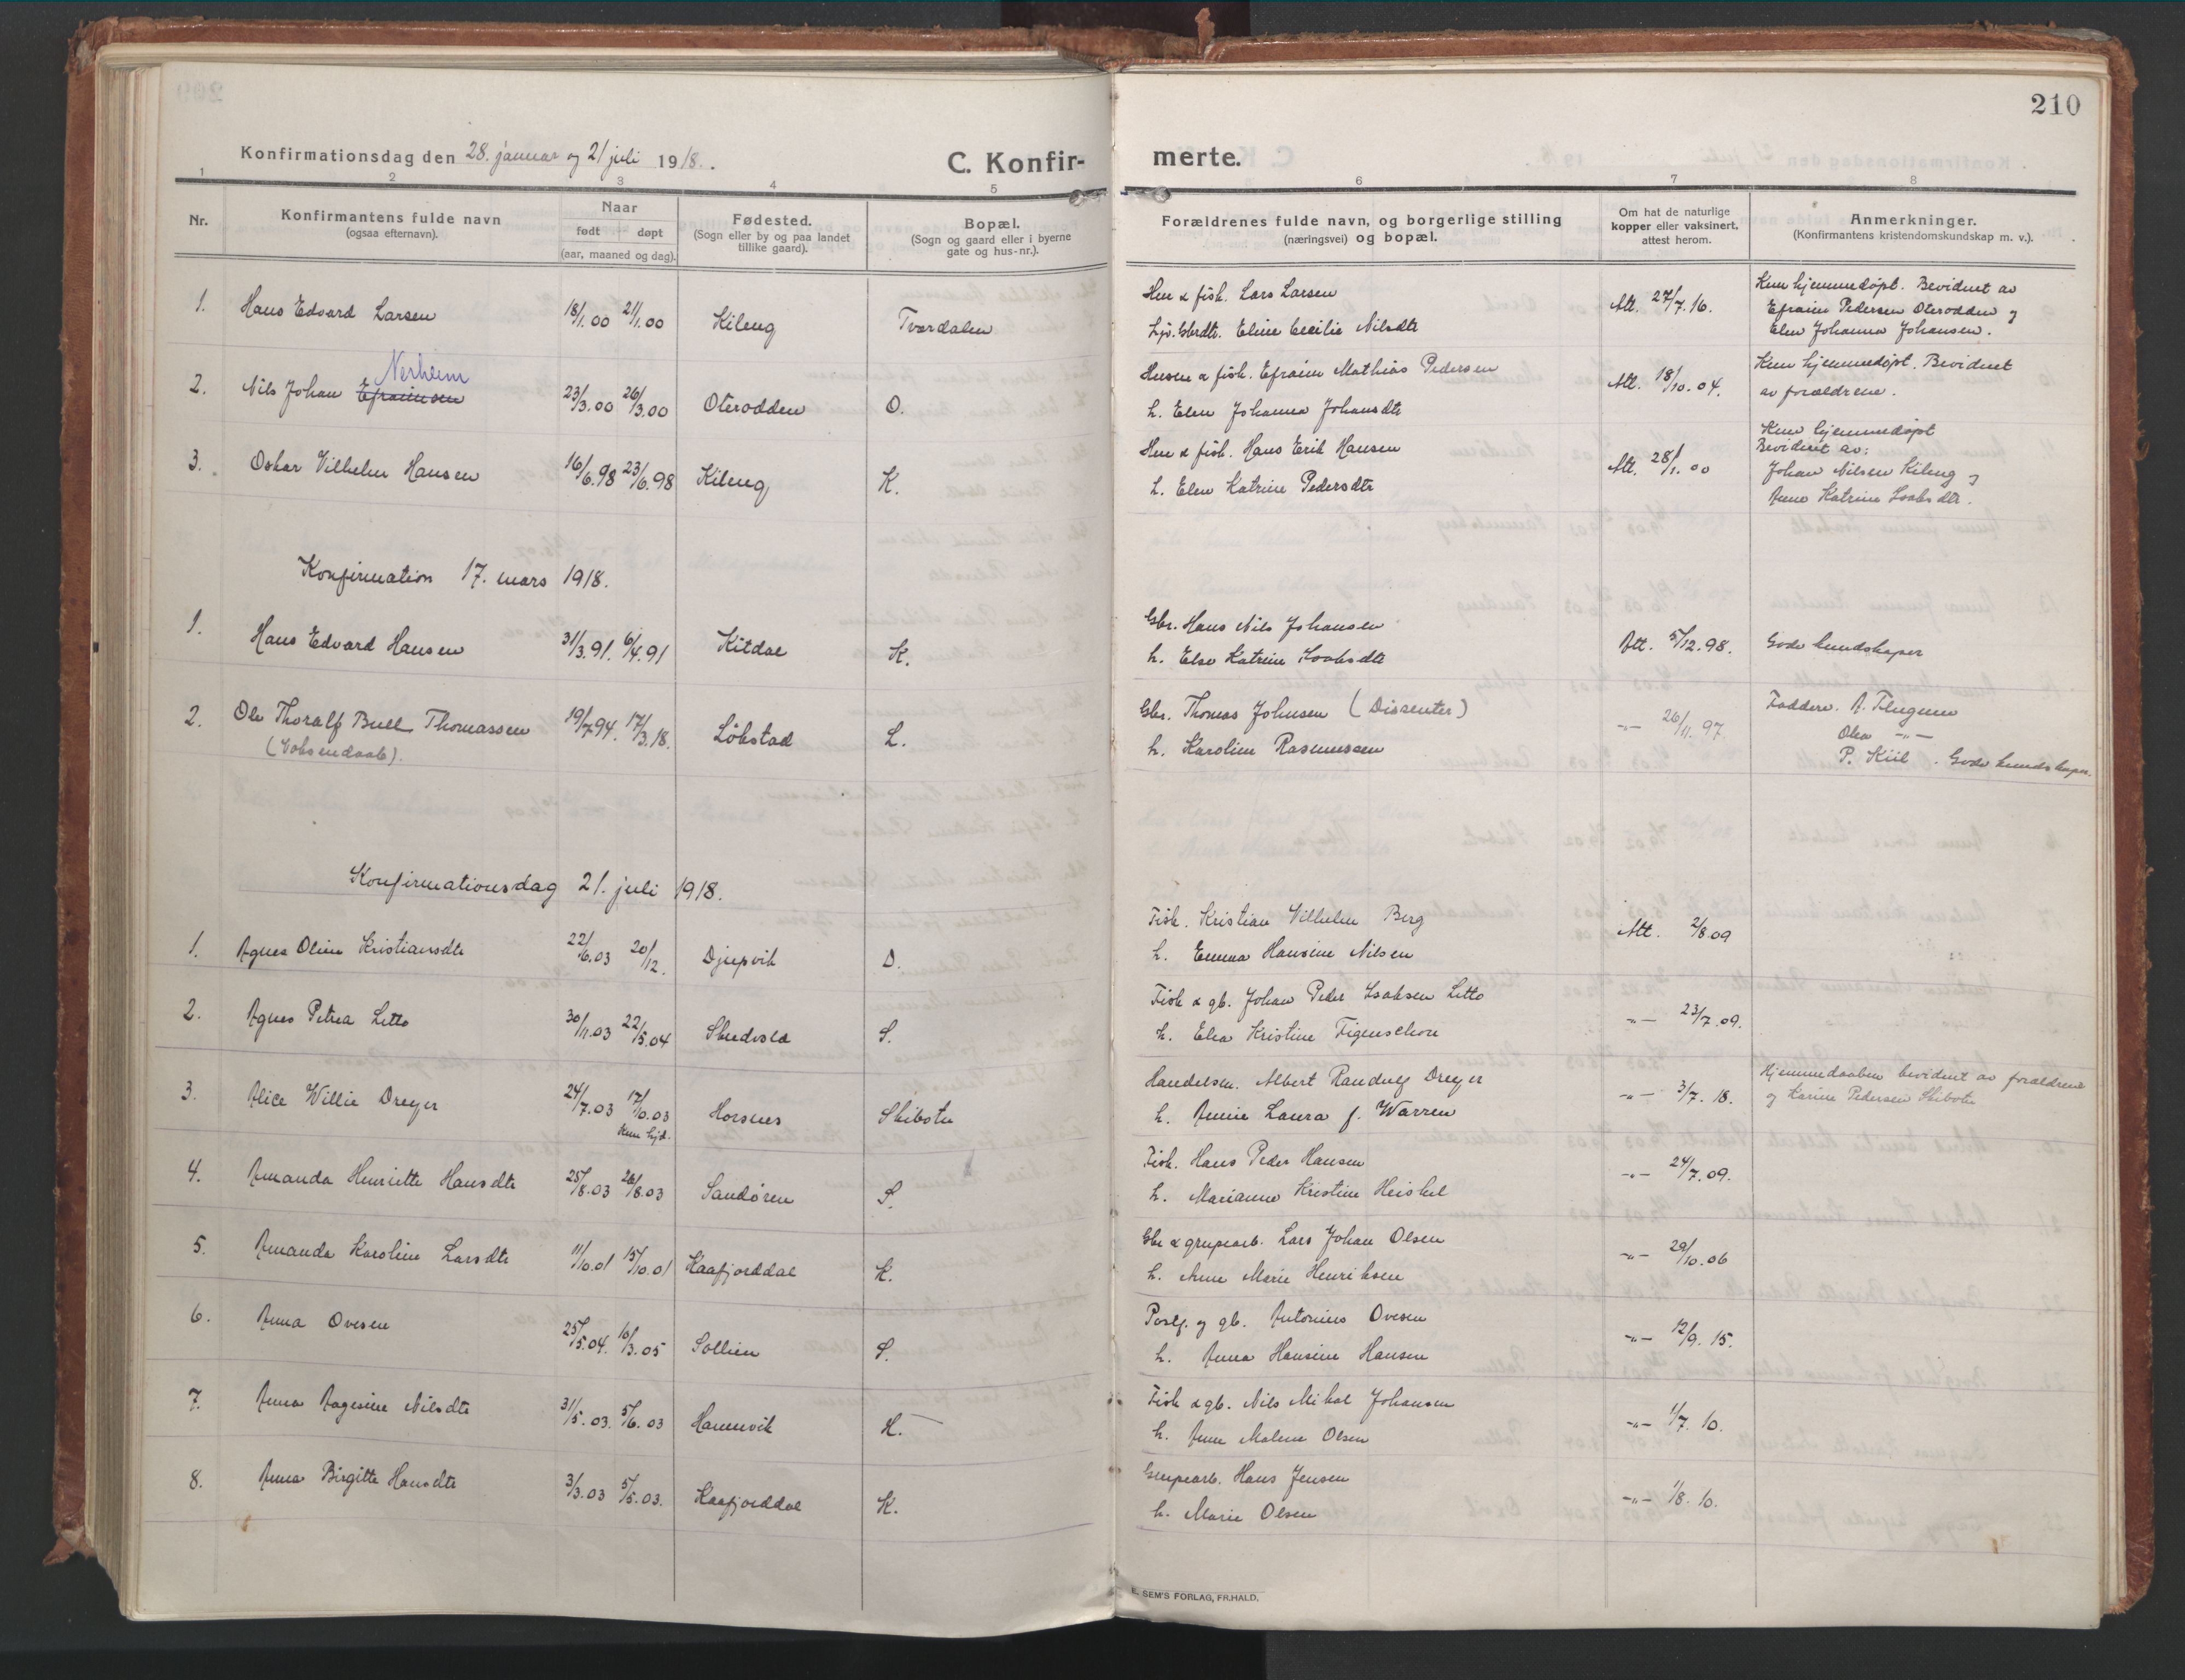 210
Konfirmationsdag den 28. januar og 21 juli 1918.
C. Konfirmerte.
1 2 3 4 5 6 7 8
Nr.
Konfirmantens fulde navn
(ogsaa efternavn).
Naar
født døpt
(aar, maaned og dag).
Fødested.
(Sogn eller by og paa landet
tillike gaard).
Bopæl.
(Sogn og gaard eller i byerne
gate og hus-nr.).
Forældrenes fulde navn, og borgerlige stilling
(næringsvei) og bopæl.
Om hat de naturlige
kopper eller vaksinert,
attest herom.
Anmerkninger.
(Konfirmantens kristendomskundskap m. v.).
1. Hans Edvard Larsen 18/1.00 21/1.00 Kileng Tverdalen
Hm & fisk. Lars Larsen
Eline Cecilie Nilsdtr
Att. 27/7.16.
Kun hjemmedøpt. Bevidnet av
Efraim Pedersen Oterodden og
Elen Johanna Johansen.
Nerheim
2. Nils Johan Efraimsen 23/3.00 26/3.00 Oterodden O.
Husm & fisk. Efraim Mathias Pedersen
h. Elen Johanna Johansdtr
Att. 18/10.04.
Kun hjemmedøpt. Bevidnet
av forældrene.
3. Oskar Vilhelm Hansen 16/6.98 23/6.98 Kileng K.
Hm & fisk. Hans Erik Hansen
h. Elen Katrine Pedersdtr
Att. 28/1.00
Kun hjemmedøpt
Bevidnet av:
Johan Nilsen Kileng og
Anne Katrine Isaksdtr.
Konfirmation 17. mars 1918.
1. Hans Edvard Hansen 31/3.91. 6/4.91 Kitdal K.
Gbr. Hans Nils Johansen
h. Else Katrine Isaksdtr
Att. 5/12.98.
Gode kundskaper
2. Ole Thoralf Bull Thomassen 19/7.94. 17/3.18. Løkstad L.
(Voksendaab).
Gbr. Thomas Johnsen (Dissenter)
h. Karoline Rasmussen
-"- 26/11.97.
Faddere. A. Flugum
Olea -"-
P. Kiil. Gode kundskaper.
Konfirmationsdag 21. juli 1918.
1. Agnes Oline Kristiansdtr 22/6.03 20/12. Djupvik D.
Fisk. Kristian Vilhelm Berg
h. Emma Hansine Nilsen
Att. 2/8.09
2. Agnes Petrea Letto 30/11.03 22/5.04 Skudvold S.
Fisk & gb. Johan Peder Isaksen Letto
h. Elea Kristine Figenschou
-"- 23/7.09.
3. Alice Willie Dreyer 24/7.03 17/10.03 Horsnes Skibotn
Kun hjd.
Handelsm. Albert Randulf Dreyer
h. Annie Laura f. Warren
-"- 3/7.18.
Hjemmedaaben bevidnet av forældrene
og Karine Pedersen Skibotn
4. Amanda Henriette Hansdtr 25/8.03 26/8.03 Sandøren S.
Fisk. Hans Peder Hansen
h. Marianne Kristine Heiskel
-"- 24/7.09.
5. Amanda Karoline Larsdtr 11/10.01 15/10.01 Kaafjorddal K.
Gbr & grupearb. Lars Johan Olsen
h. Anne Marie Henriksen
-"- 29/10.06
6. Anna Ovesen 25/5.04. 16/3.05 Sollien S.
Postf. og gb. Antonius Ovesen
h. Anna Hansine Hansen
-"- 12/9.15.
7. Anna Aagesine Nilsdtr 31/5.03. 5/6.03 Hamnvik H.
Fisk & gb. Nils Mikal Johansen
h. Anne Malene Olsen
-"- 1/7.10.
8. Anna Birgitte Hansdtr 3/3.03 5/5.03. Kaafjorddal K.
Grupearb. Hans Jensen
h. Marie Olsen
-"- 1/8.10.
E. SEM'S FORLAG, FR.HALD.